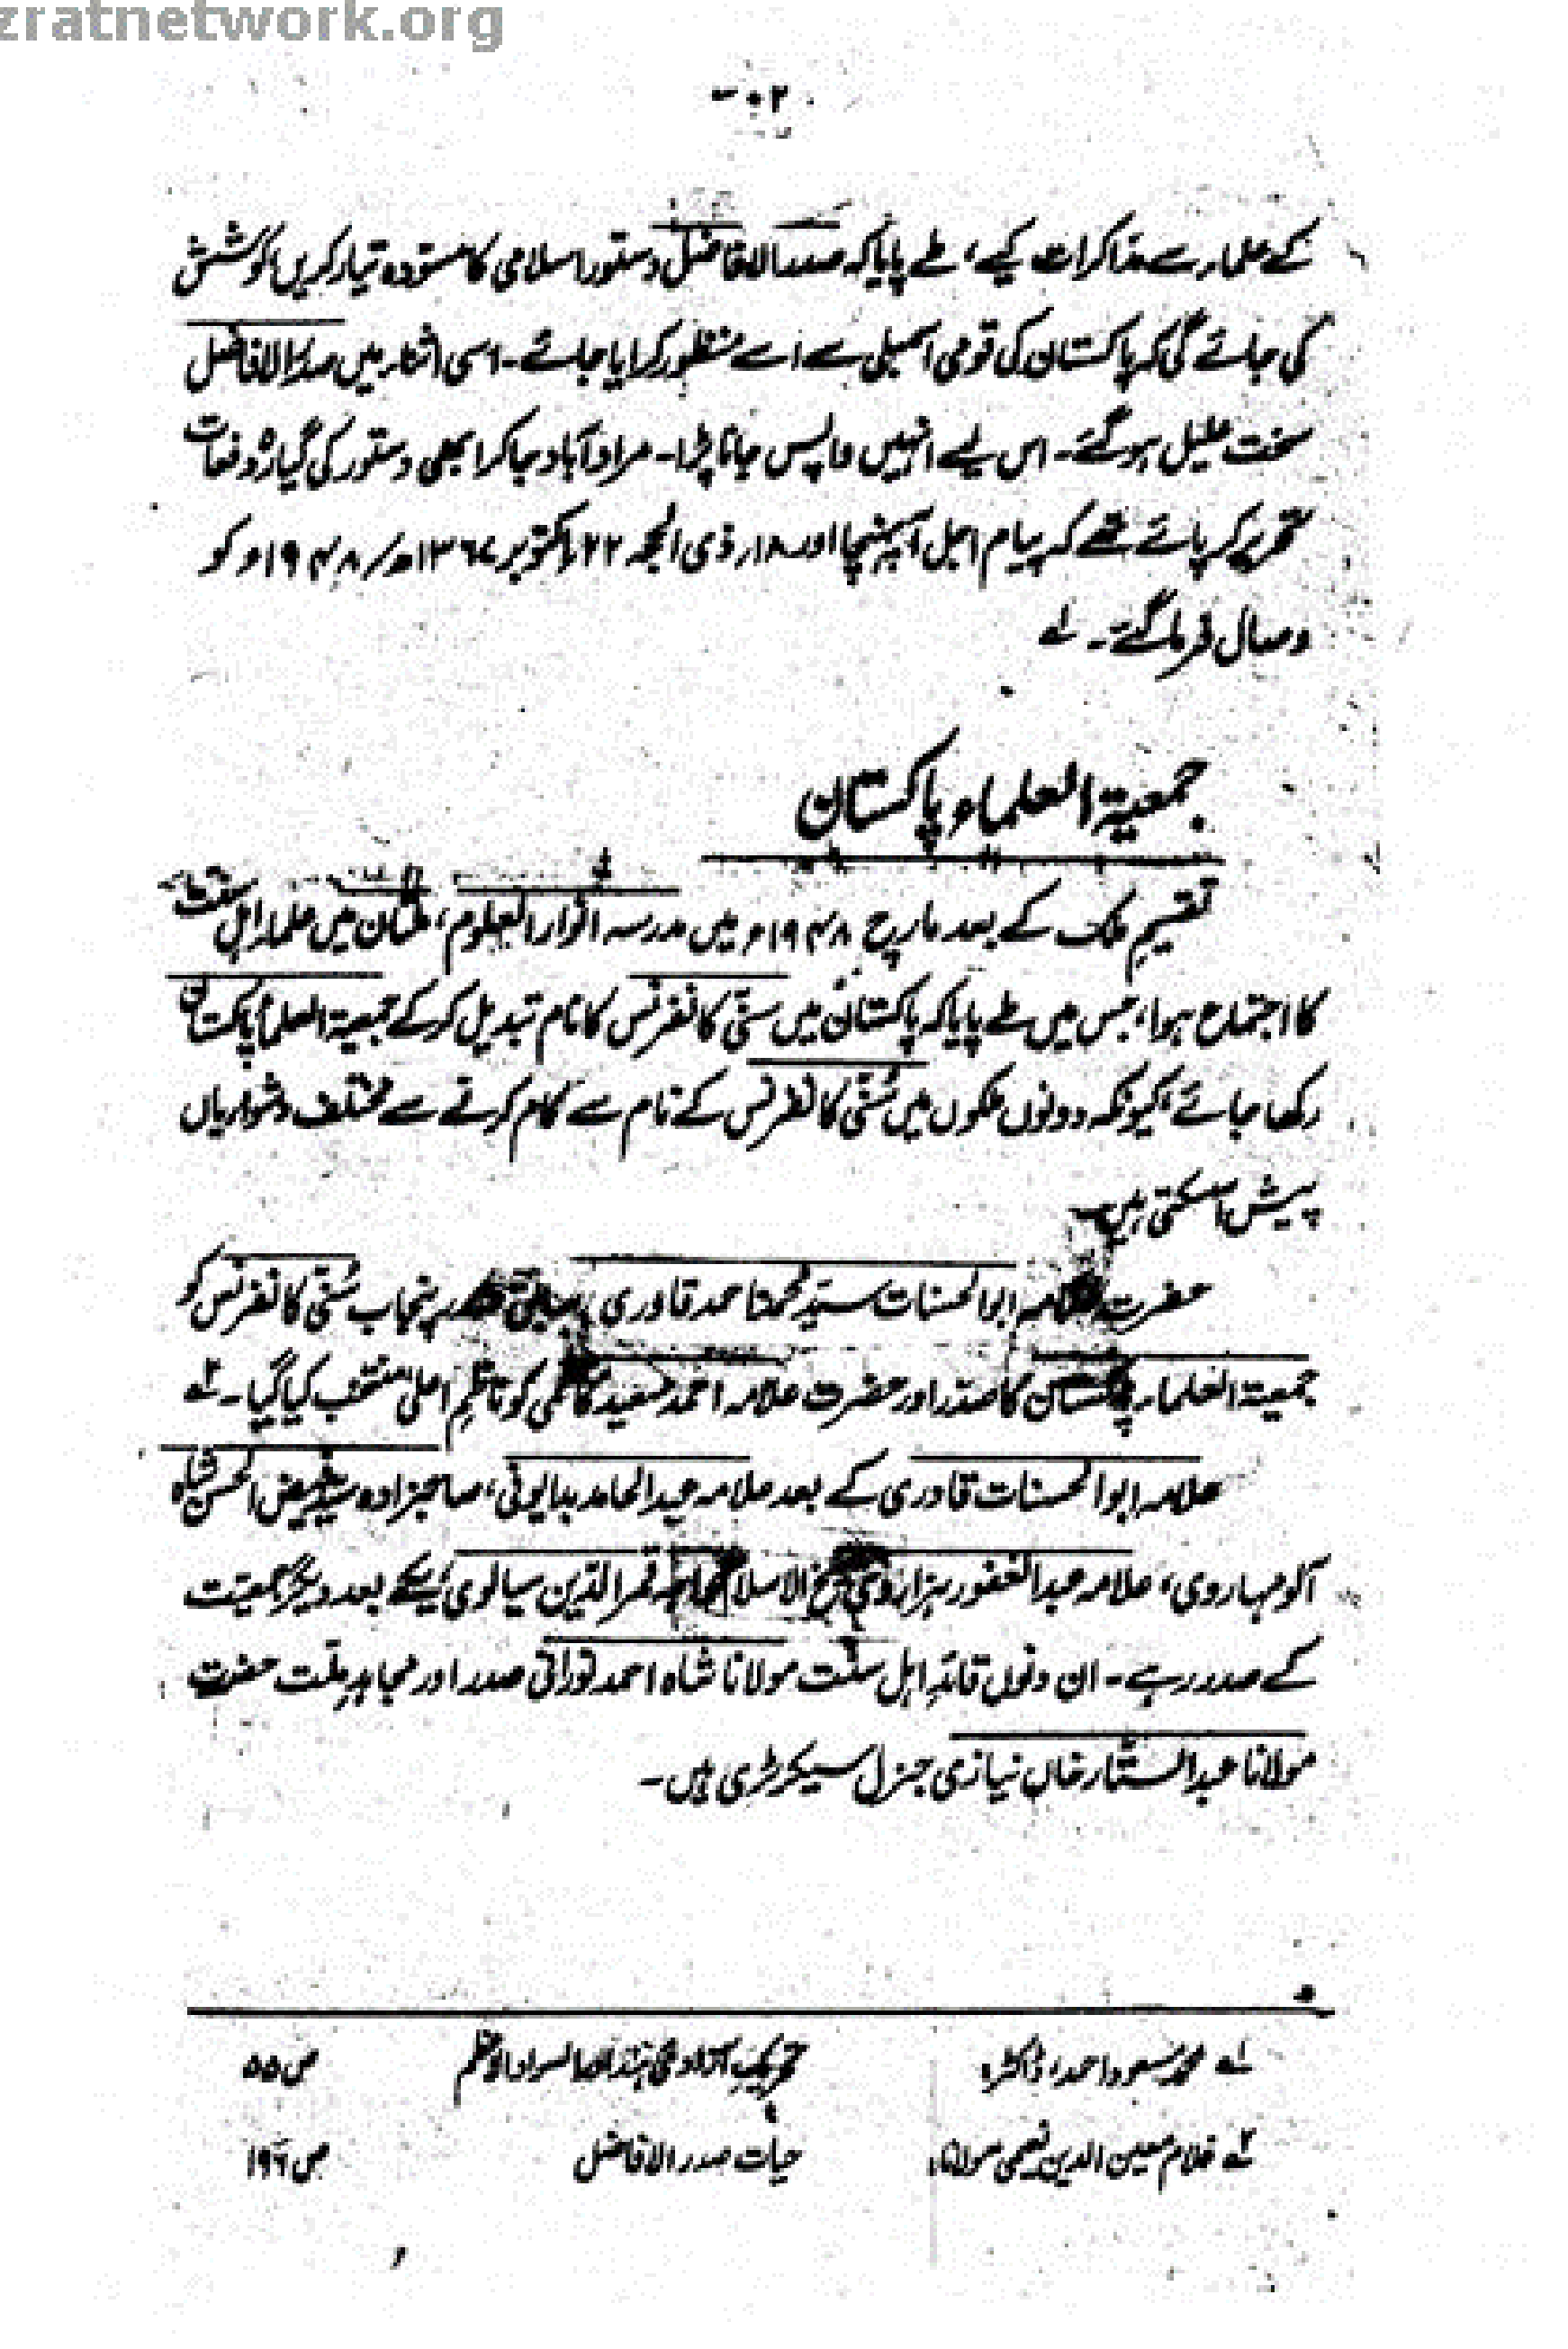 zratnetwork.org
کے علماء سے مذاکرات کیے، طے پایا کہ صدر الافاضل دستور اسلامی کا مسودہ تیار کریں، کوشش
کی جائے گی کہ پاکستان کی قومی اسمبلی سے اسے منظور کرایا جائے۔ اسی اثناء میں صدر الافاضل
سخت علیل ہو گئے۔ اس لیے انہیں واپس جانا پڑا۔ مراد آباد جا کر ابھی دستور کی گیارہ دفعات
تحریر کر پائے تھے کہ پیام اجل آ پہنچا اور ۱۸ر ذی الحجہ ۲۲ اکتوبر ۱۳۶۷ھ/ ۱۹۴۸ء کو
وصال فرما گئے۔ لے
جمعیۃ العلماء پاکستان
تقسیم ملک کے بعد مارچ ۱۹۴۸ء میں مدرسہ انوار العلوم، ملتان میں علماء اہل سنت
کا اجتماع ہوا، جس میں طے پایا کہ پاکستان میں سنّی کانفرنس کا نام تبدیل کر کے جمیعۃ العلماء پاکستان
رکھا جائے، کیونکہ دونوں ملکوں میں سُنّی کانفرنس کے نام سے کام کرنے سے مختلف دشواریاں
پیش آ سکتی ہیں۔
حضرت علامہ ابوالحسنات سیّد محمد احمد قادری پنجاب سُنّی کانفرنس کو
جمیعۃ العلماء پاکستان کا صدر اور حضرت علامہ احمد سعید کاظمی کو ناظمِ اعلیٰ منتخب کیا گیا۔ ۲ے
علامہ ابوالحسنات قادری کے بعد علامہ عبدالحامد بدایونی، صاحبزادہ سید فیض الحسن شاہ
آلو مہاروی، علامہ عبدالغفور ہزاروی شیخ الاسلام خواجہ قمر الدّین سیالوی یکے بعد دیگرے جمیعت
کے صدر رہے۔ ان دنوں قائدِ اہل سنّت مولانا شاہ احمد نورانی صدر اور مجاہدِ ملّت حضرت
مولانا عبدالستّار خاں نیازی جنرل سیکرٹری ہیں۔
لے محمد مسعود احمد، ڈاکٹر: تحریک آزادی ہند اور السواد الاعظم ص ۵۵
۲ے غلام معین الدین نعیمی مولانا: حیات صدر الافاضل ص ۱۹۶